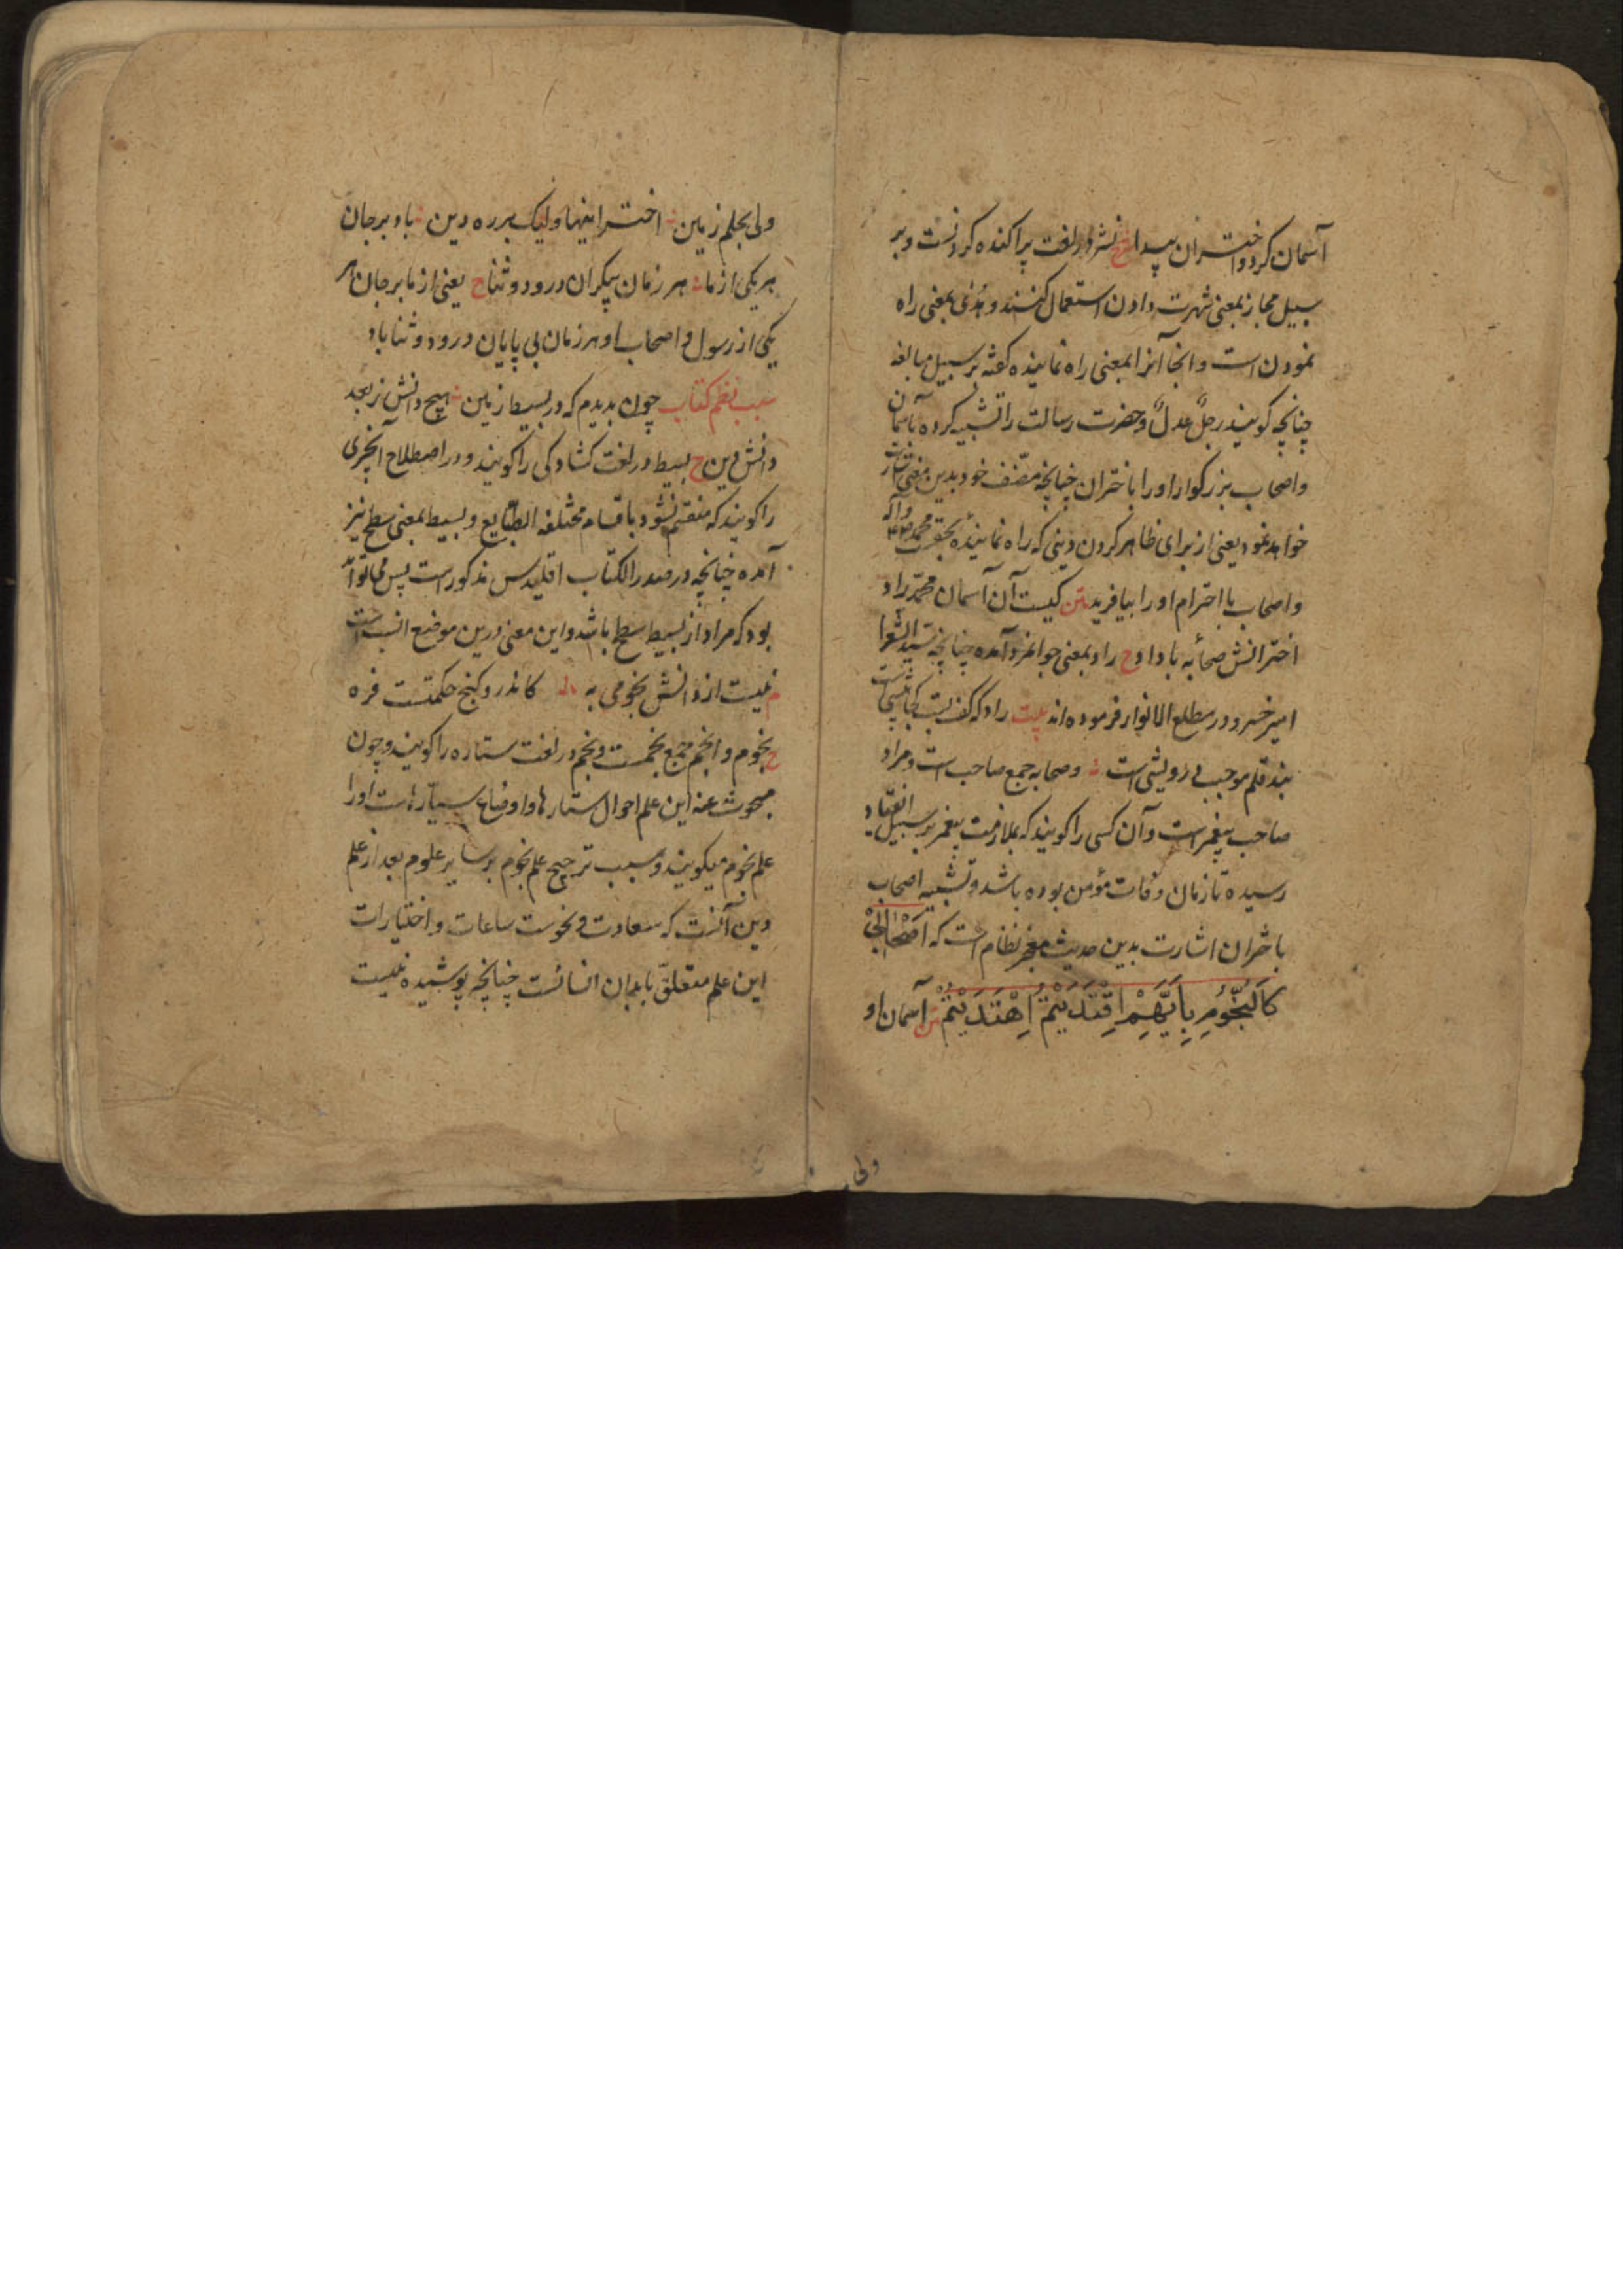 آسمان کرد و اختران پیدا ح نشر در لغت پراکنده کردنست و بر
سبیل مجاز بمعنی شهرت دادن استعمال کنند و هدی بمعنی راه
نمودن است و اینجا آنرا بمعنی راه نماینده گفته بر سبیل مبالغه
چنانچه گویند رجلٌ عدلٌ و حضرت رسالت را تشبیه کرده بآسمان
و اصحاب بزرگوار او را باختران چنانچه مصنف خود بدین معنی اشارت
خواهد نمود یعنی از برای ظاهر کردن دینی که راه نماینده بحقست محمد و آله
و اصحاب با احترام او را بیافرید متن کیست آن آسمان محمد راد
اخترانش صحابه با داد ح راد بمعنی جوانمرد آمده چنانچه سید الشعرا
امیر خسرو در مطلع الانوار فرموده اند بیت راد که کف بست
بند قلم موجب درویشی است و صحابه جمع صاحب است و مراد
صاحب پیغمبر است و آن کسی را گویند که بملازمت پیغمبر بر سبیل انقیاد
رسیده تا زمان وفات مؤمن بوده باشد و تشبیه اصحاب
باختران اشارت بدین حدیث معجز نظام است که اَصْحَابِی
کَالنُّجُومِ بِاَیِّهِمْ اِقْتَدَیْتُمْ اِهْتَدَیْتُمْ متن آسمان او
ولی
ولی بحلم زمین اختر اینها ولیک بر ره دین باد بر جان
هر یکی از ما هر زمان بیکران درود و ثنا ح یعنی از ما بر جان هر
یکی از رسول و اصحاب او هر زمان بی پایان درود و ثنا باد
سبب نظم کتاب چون بدیدم که در بسیط زمین هیچ دانش ز بعد
دانش دین ح بسیط در لغت گشادگی را گویند و در اصطلاح آنچیزی
را گویند که منقسم نشود باقسام مختلفه الطبایع و بسیط بمعنی سطح نیز
آمده چنانچه در صدر الکتاب اقلیدس مذکور است پس می تواند
بود که مراد از بسیط سطح باشد و این معنی درین موضع انسب است
م نیست از دانش نجومی به کاندرو گنج حکمتست فره
ح نجوم و انجم جمع نجمست و نجم در لغت ستاره را گویند و چون
مبحوث عنه این علم احوال ستارها و اوضاع سیارهاست او را
علم نجوم میگویند و سبب ترجیح علم نجوم بر سایر علوم بعد از علم
دین آنست که سعادت و نحوست ساعات و اختیارات
این علم متعلق بابدان انسانست چنانچه پوشیده نیست